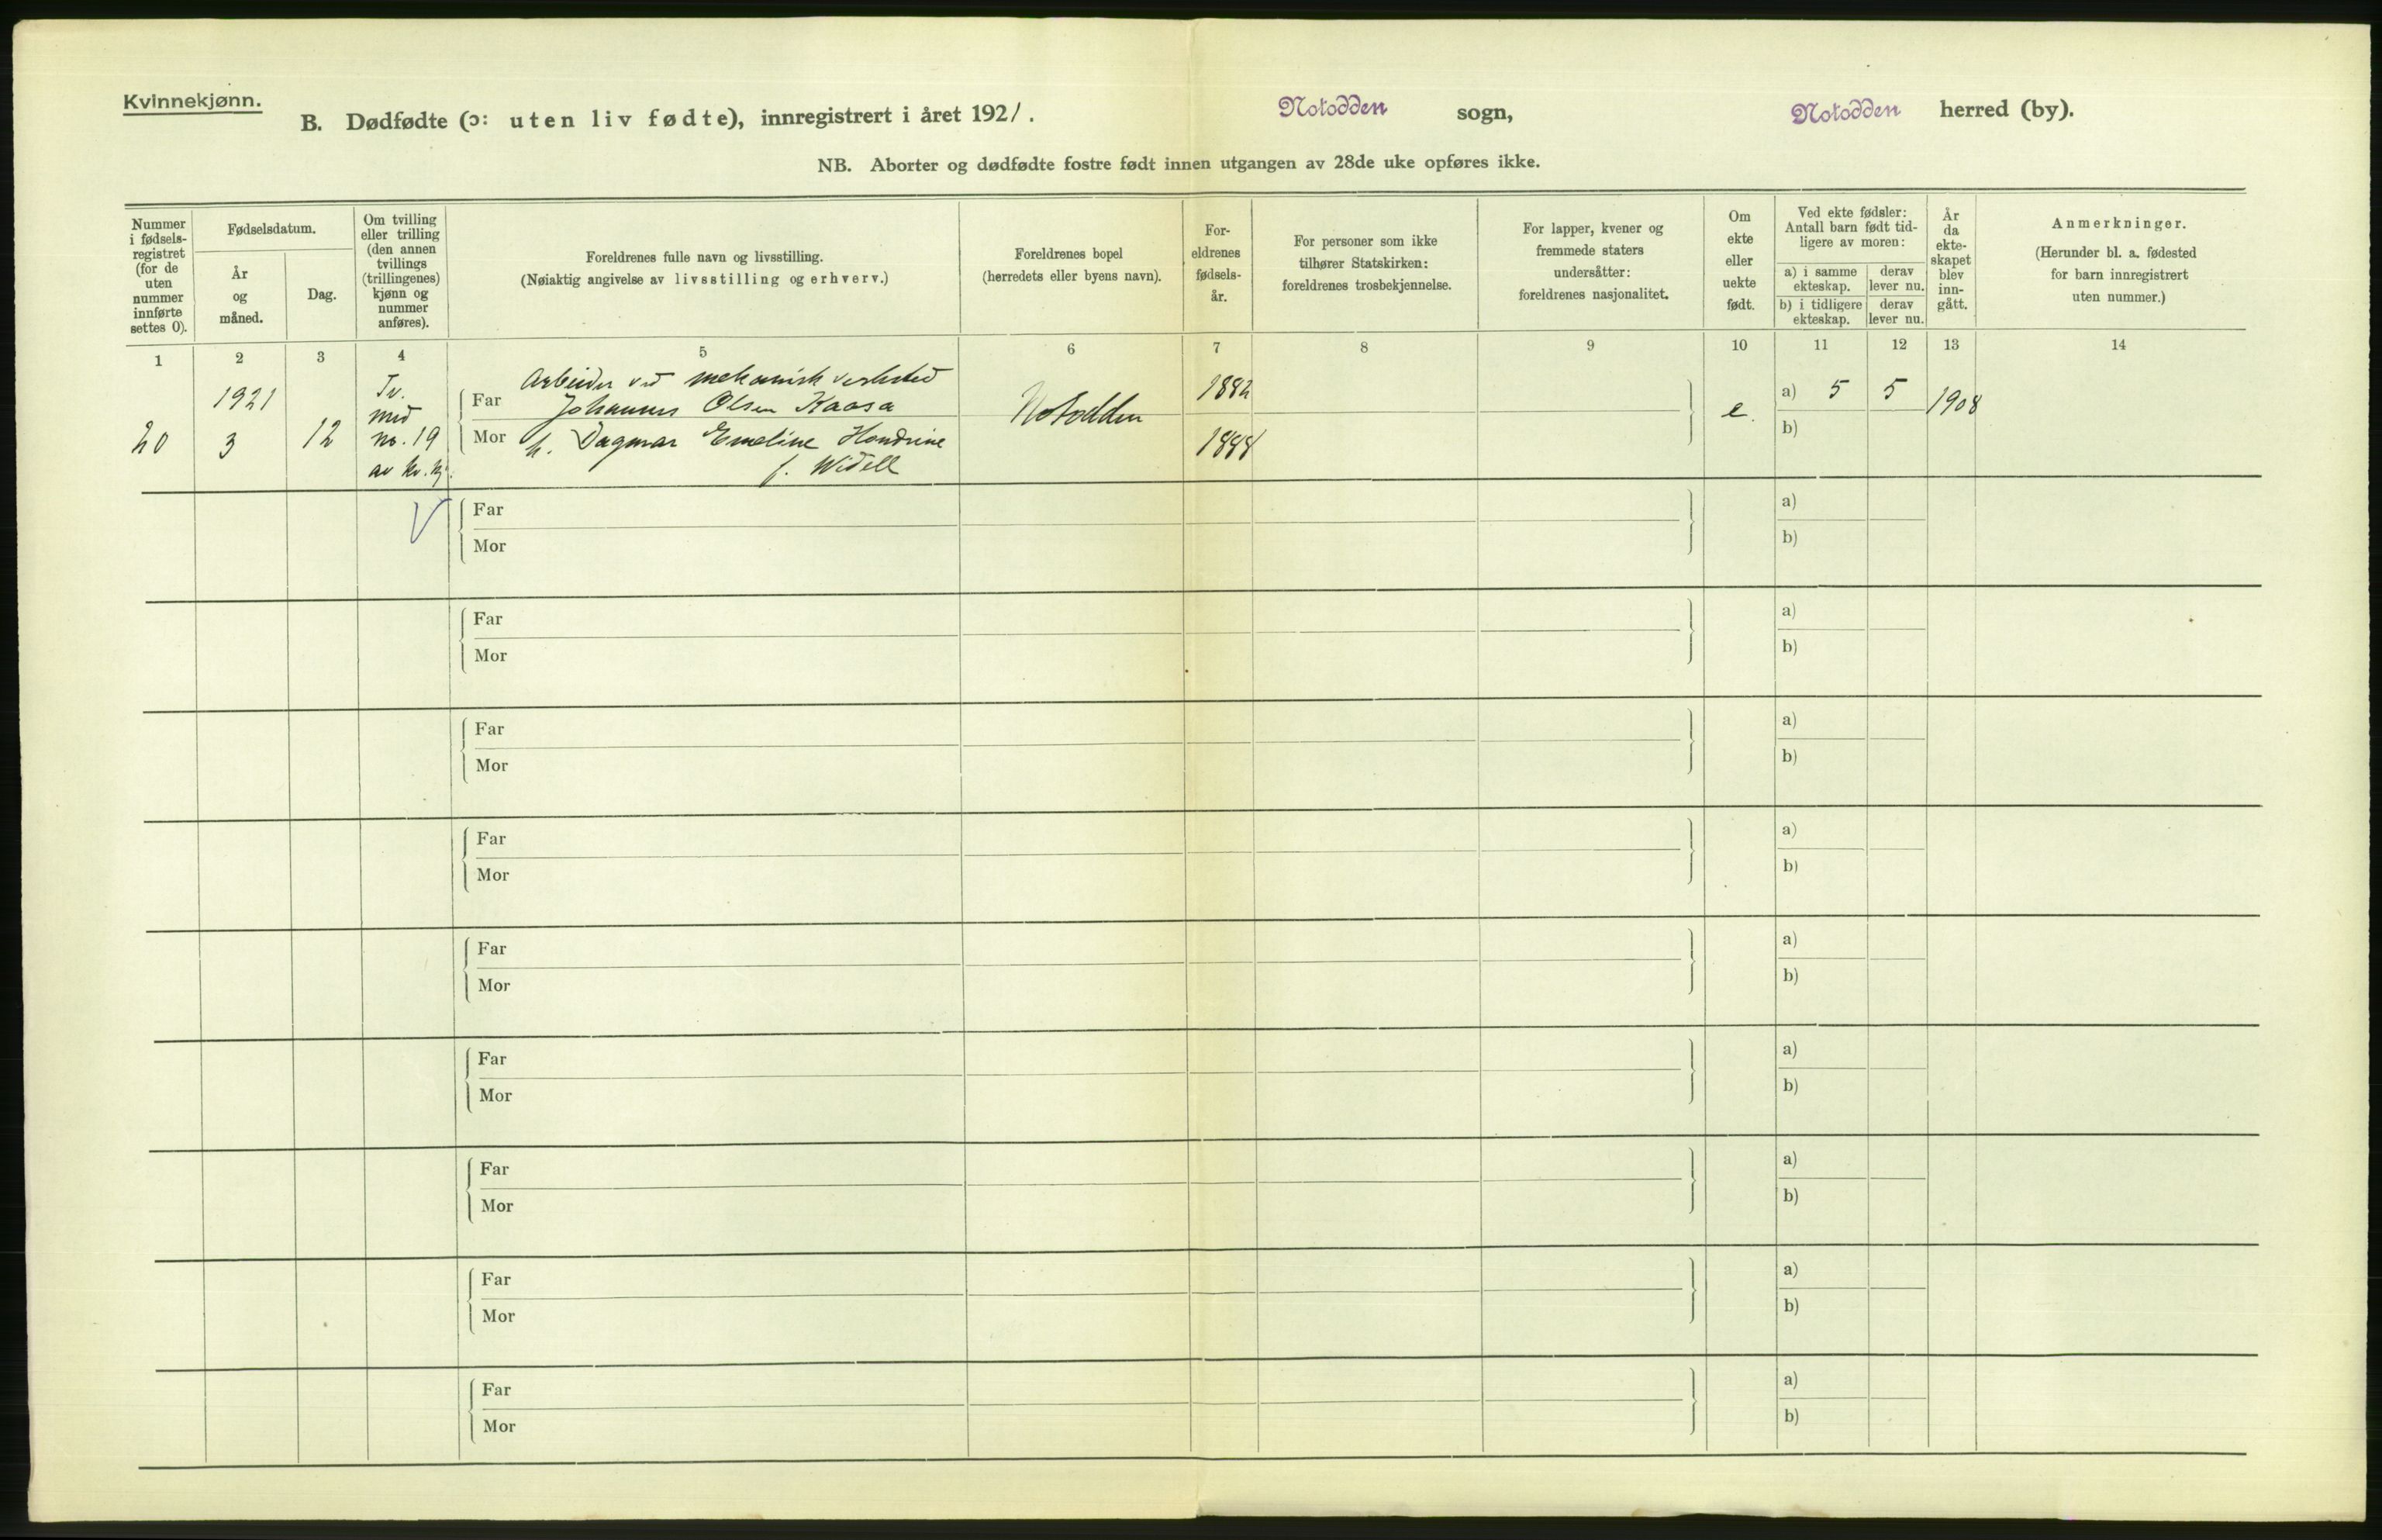 Kvinnekjønn.
B. Dødfødte (ɔ: uten liv fødte), innregistrert i året 1921. Notodden sogn, Notodden herred (by).
NB. Aborter og dødfødte fostre født innen utgangen av 28de uke opføres ikke.
Nummer i fødsels- registret (for de uten nummer innførte settes 0).
Fødselsdatum.
År og måned.
Dag.
Om tvilling eller trilling (den annen tvillings (trillingenes) kjønn og nummer anføres).
Foreldrenes fulle navn og livsstilling.
(Nøiaktig angivelse av livsstilling og erhverv.)
Foreldrenes bopel
(herredets eller byens navn).
For- eldrenes fødsels- år.
For personer som ikke tilhører Statskirken: foreldrenes trosbekjennelse.
For lapper, kvener og fremmede staters undersåtter: foreldrenes nasjonalitet.
Om ekte eller uekte født.
Ved ekte fødsler: Antall barn født tid- ligere av moren:
a) i samme ekteskap.
derav lever nu.
b) i tidligere ekteskap.
derav lever nu.
År da ekte- skapet blev inn- gått.
Anmerkninger.
(Herunder bl. a. fødested for barn innregistrert uten nummer.)
1 2 3 4 5 6 7 8 9 10 11 12 13 14
20
1921
3
12
Tv.
med
no. 19
av kv.kj.
Arbeider ved mekanisk verksted
Far Johannes Olsen Kaasa
Mor h. Dagmar Emeline Handrine
f. Widell
Notodden
1882
1888
e.
a) 5 5
b)
1908
Far
Mor
a)
b)
Far
Mor
a)
b)
Far
Mor
a)
b)
Far
Mor
a)
b)
Far
Mor
a)
b)
Far
Mor
a)
b)
Far
Mor
a)
b)
Far
Mor
a)
b)
Far
Mor
a)
b)